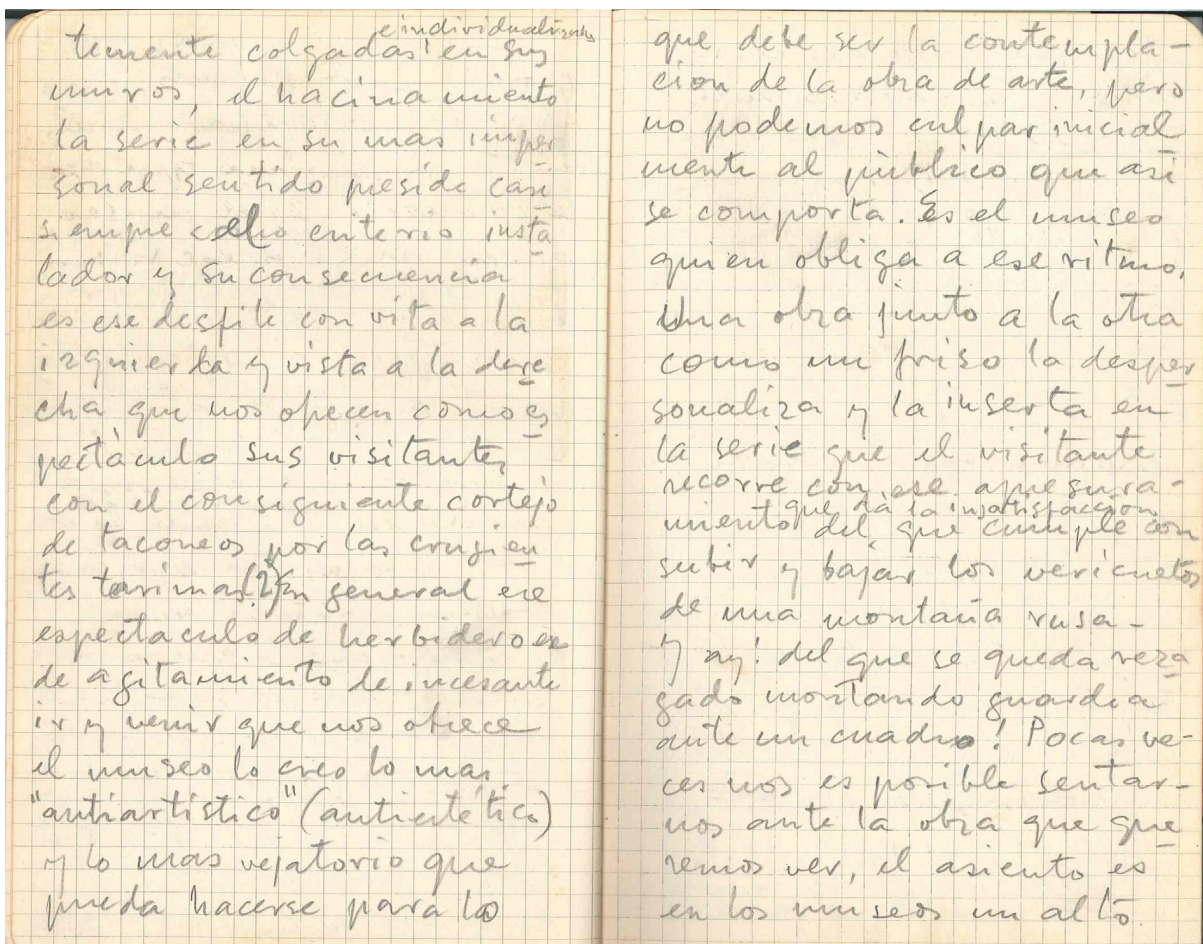 temente colgadas e individualizadas en sus
muros, el hacinamiento
la serie en su mas imper
sonal sentido preside casi
siempre el criterio insta
lador y su consecuencia
es ese desfile con vita a la
izquierda y vista a la dere
cha que nos ofrecen como es
pectáculo sus visitantes,
con el consiguiente cortejo
de taconeos por las crugien
tes tarimas(2) En general ese
espectaculo de herbidero
de agitamiento de incesante
ir y venir que nos ofrece
el museo lo creo lo mas
"antiartistico" (antiestético)
y lo mas vejatorio que
pueda hacerse para lo
que debe ser la contempla-
cion de la obra de arte, pero
no podemos culpar inicial
mente al público que asi
se comporta. Es el museo
quien obliga a ese ritmo.
Una obra junto a la otra
como un friso la desper
sonaliza y la inserta en
la serie que el visitante
recorre con ese apresura-
miento que da la insatisfaccion del que cumple con
subir y bajar los vericuetos
de una montaña rusa -
Y ay! del que se queda reza
gado montando guardia
ante un cuadro! Pocas ve-
ces nos es posible sentar-
nos ante la obra que que
remos ver, el asiento es
en los museos un alto